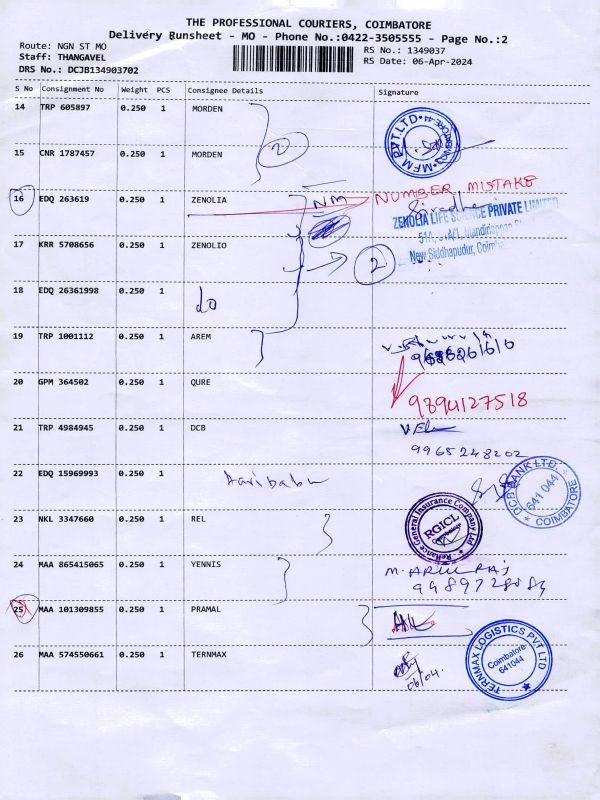 THE PROFESSIONAL COURIERS, COIMBATORE
Delivery Runsheet - MO - Phone No.:0422-3505555 - Page No.:2
Route: NGN ST MO
RS No.: 1349037
Staff: THANGAVEL
RS Date: 06-Apr-2024
DRS No.: DCJB134903702
S No Consignment No Weight PCS Consignee Details Signature
14 TRP 605897 0.250 1 MORDEN
MFM PVT LTD
2
15 CNR 1787457 0.250 1 MORDEN
NUMBER MISTAKE
16 EDQ 263619 0.250 1 ZENOLIA NM
ZENOLIA LIFE SCIENCE PRIVATE LIMITED
17 KRR 5708656 0.250 1 ZENOLIO
New Siddhapudur, Coimb
2
18 EDQ 26361998 0.250 1 do
19 TRP 1001112 0.250 1 AREM
20 GPM 364502 0.250 1 QURE
9894127518
21 TRP 4984945 0.250 1 DCB
9965248202
22 EDQ 15969993 0.250 1 Haribabu
DCB BANK LTD. 641 044 COIMBATORE
23 NKL 3347660 0.250 1 REL
Reliance General Insurance Company Ltd
RGICL
24 MAA 865415065 0.250 1 YENNIS
M. ARULRAJ
25 MAA 101309855 0.250 1 PRAMAL
26 MAA 574550661 0.250 1 TERNMAX
06/04.
TERNMAX LOGISTICS PVT LTD
Coimbatore
641044